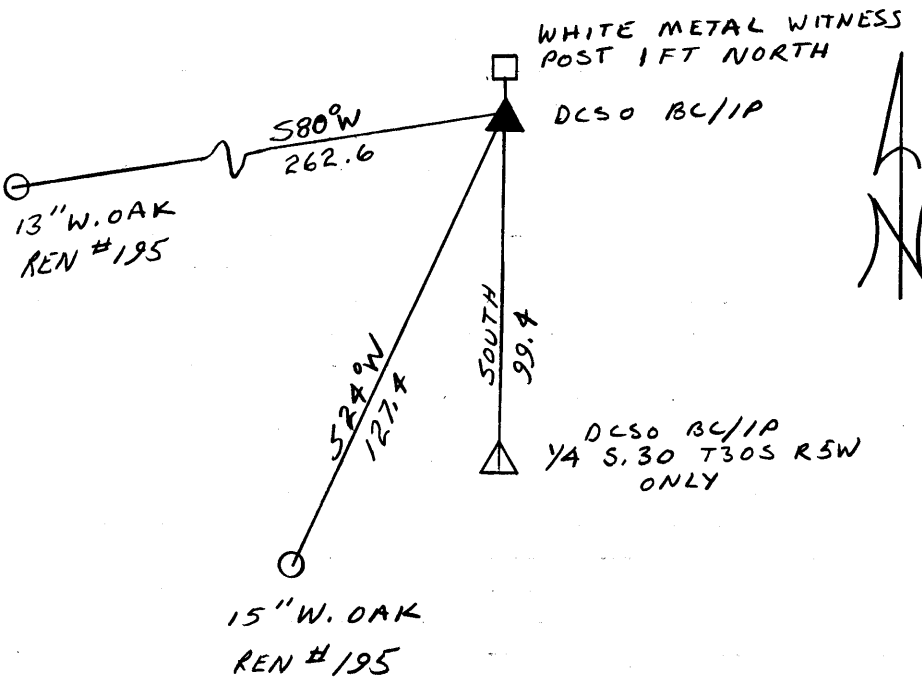 WHITE METAL WITNESS
POST 1FT NORTH
DCSO BC/IP
S80°W
262.6
13" W. OAK
REN #195
SOUTH
99.4
S24°W
127.4
DCSO BC/IP
1/4 S.30 T30S R5W
ONLY
15" W. OAK
REN #195
N